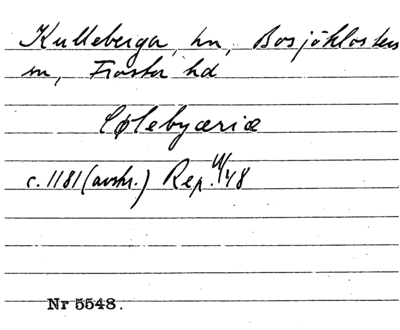 Kulleberga, hn, Bosjöklosters
sn, Frosta hd
Cølebyæriæ
c. 1181 (avskr.) Rep. 48
Nr 5548.